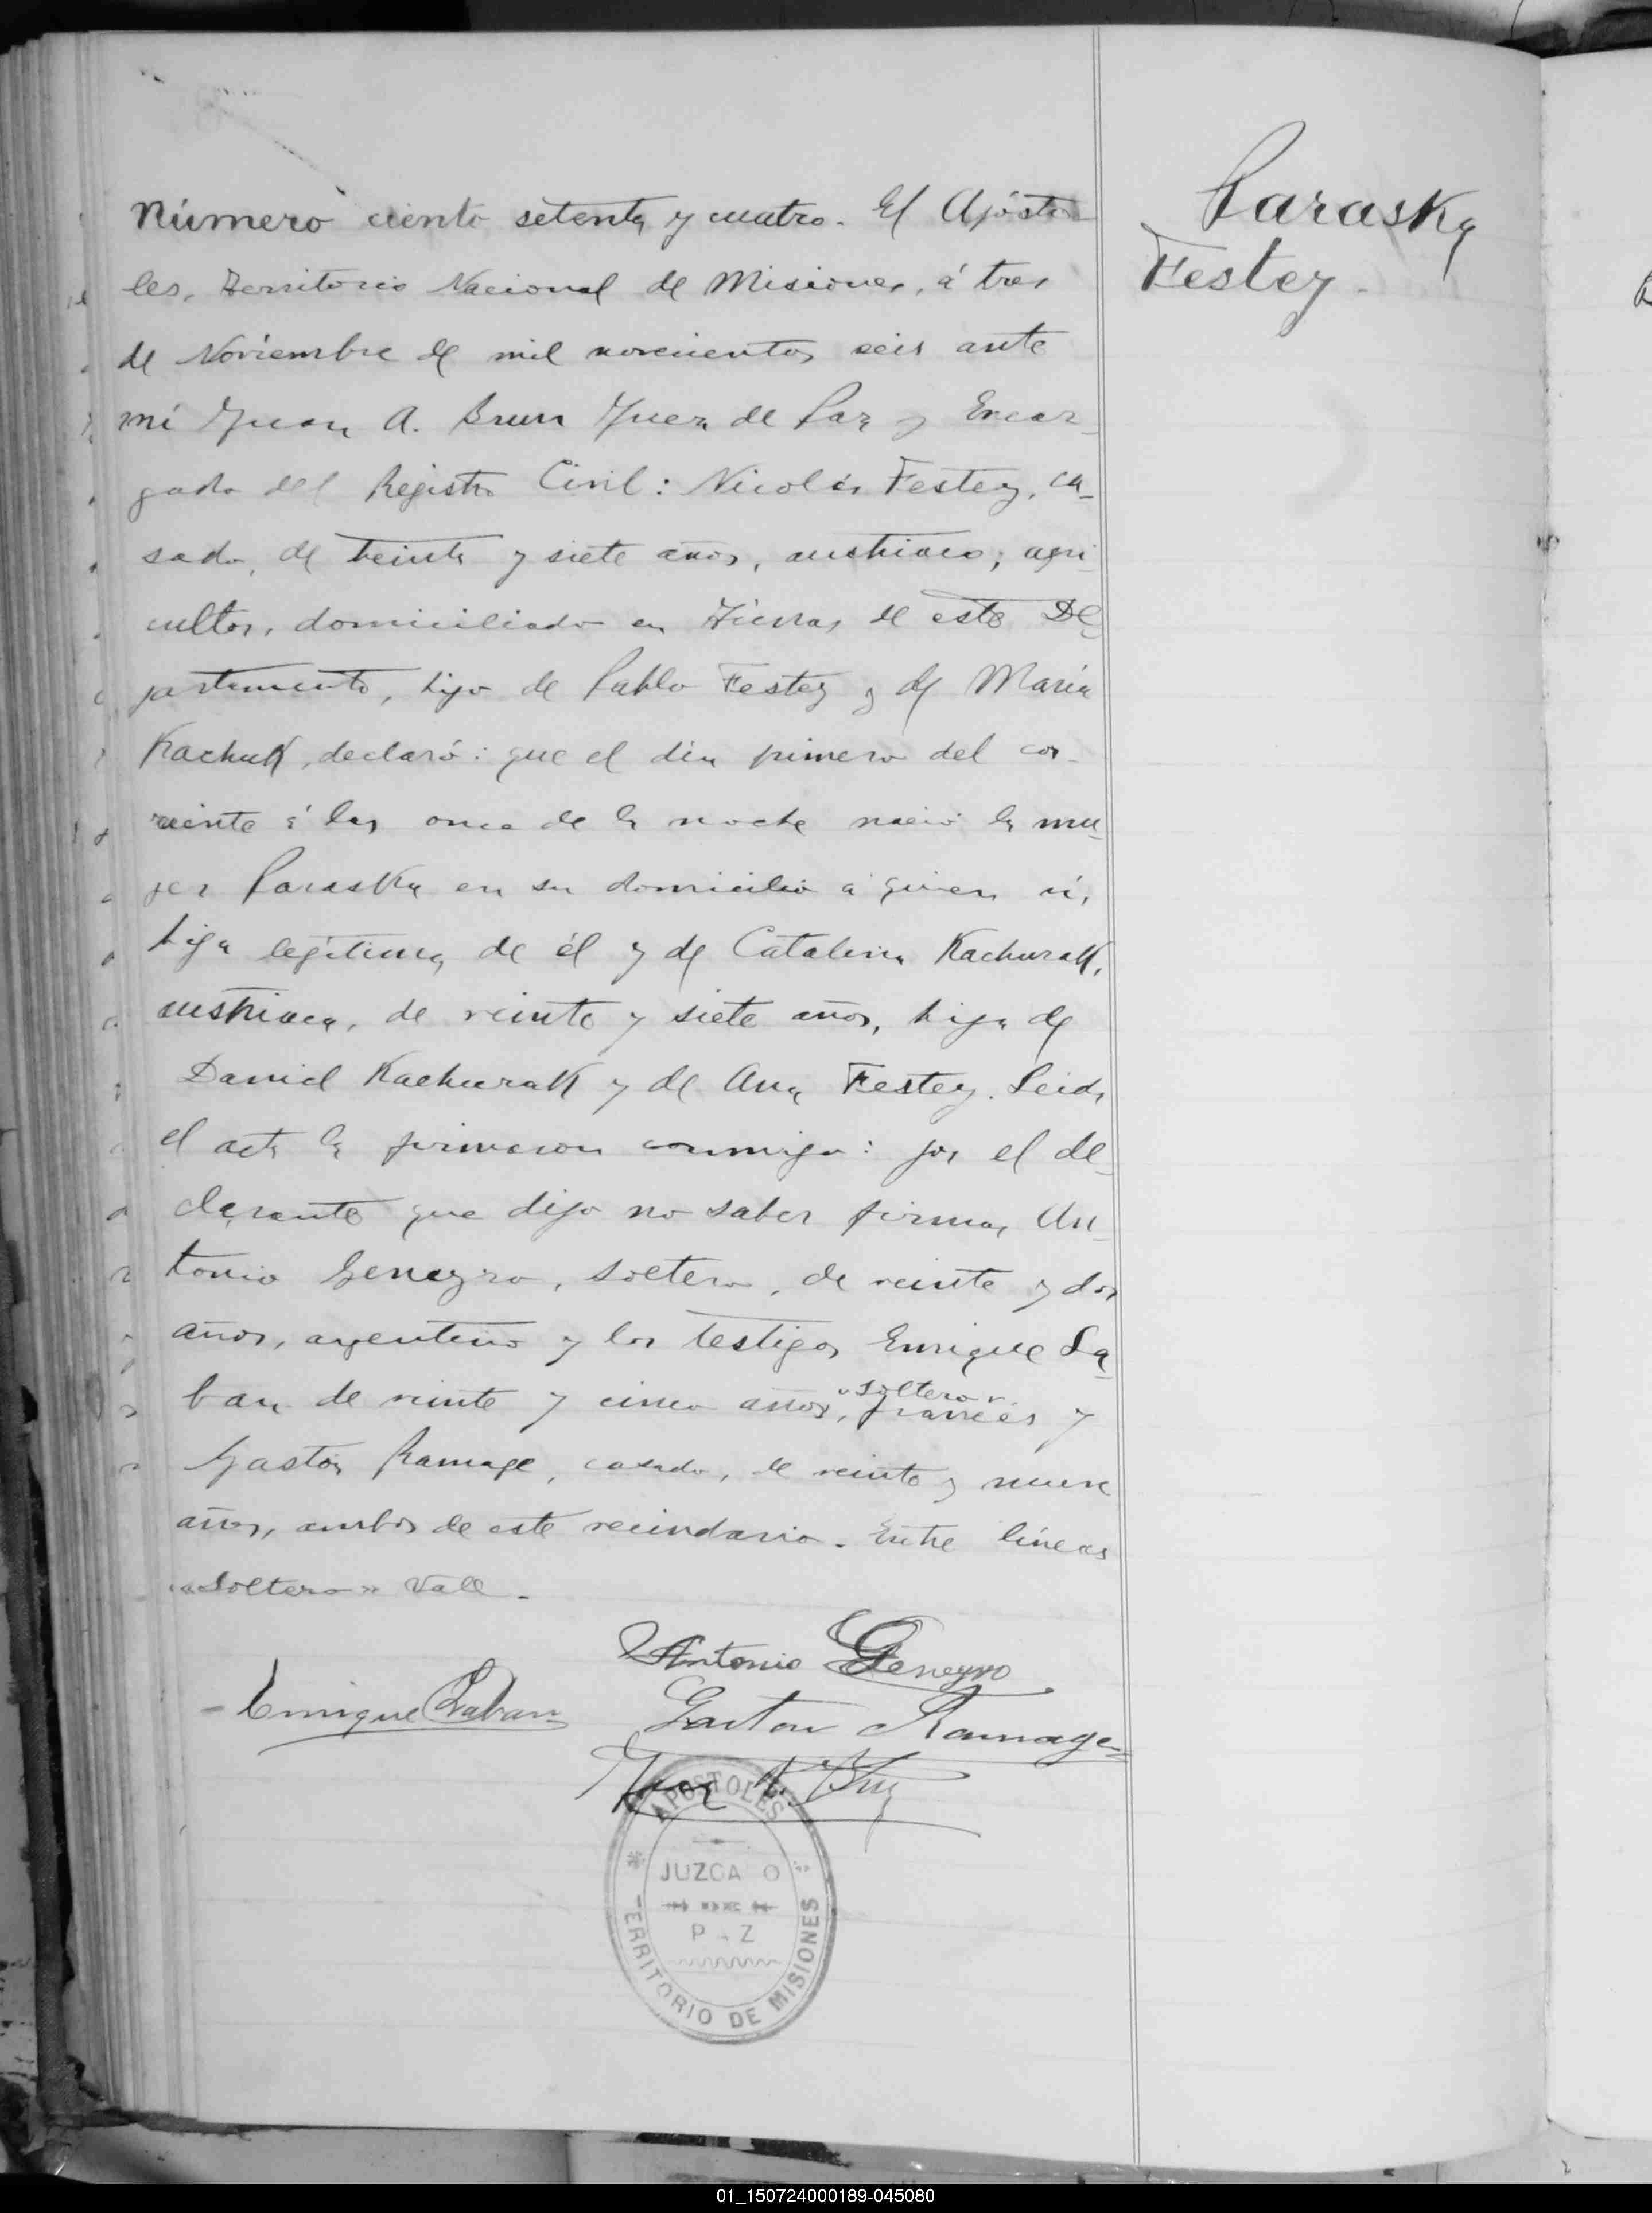 Paraska
Festey.
Número ciento setenta y cuatro. En Apósto-
les, Territorio Nacional de Misiones, á tres
de Noviembre de mil novecientos seis ante
mí Juan A. Brun Juez de Paz y Encar-
gado del Registro Civil: Nicolás Festey, ca-
sado, de treinta y siete años, austriaco, agri
cultor, domiciliado en Tierras de este De-
partamento, hijo de Pablo Festey y de María
Kachuk, declaró: que el día primero del co-
rriente á las once de la noche nació la mu-
jer Paraska en su domicilio á quien ví,
hija legítima de él y de Catalina Kachurak,
austriaca, de veinte y siete años, hija de
Daniel Kachurak y de Ana Festey. Leida
el acta la firmaron conmigo: por el de-
clarante que dijo no saber firmar An-
tonio Geneyro, soltero, de veinte y dos
años, argentino y los testigos Enrique La-
ban de veinte y cinco años, "soltero" francés y
Gastón Ramage, casado, de veinte y nueve
años, ambos de este vecindario. Entre líneas
"soltero" Vale.
Antonio Geneyro
Enrique Laban
Gaston Ramage
Juan A. Brun
APOSTOLES
JUZGA O
P Z
TERRITORIO DE MISIONES
01_150724000189-045080